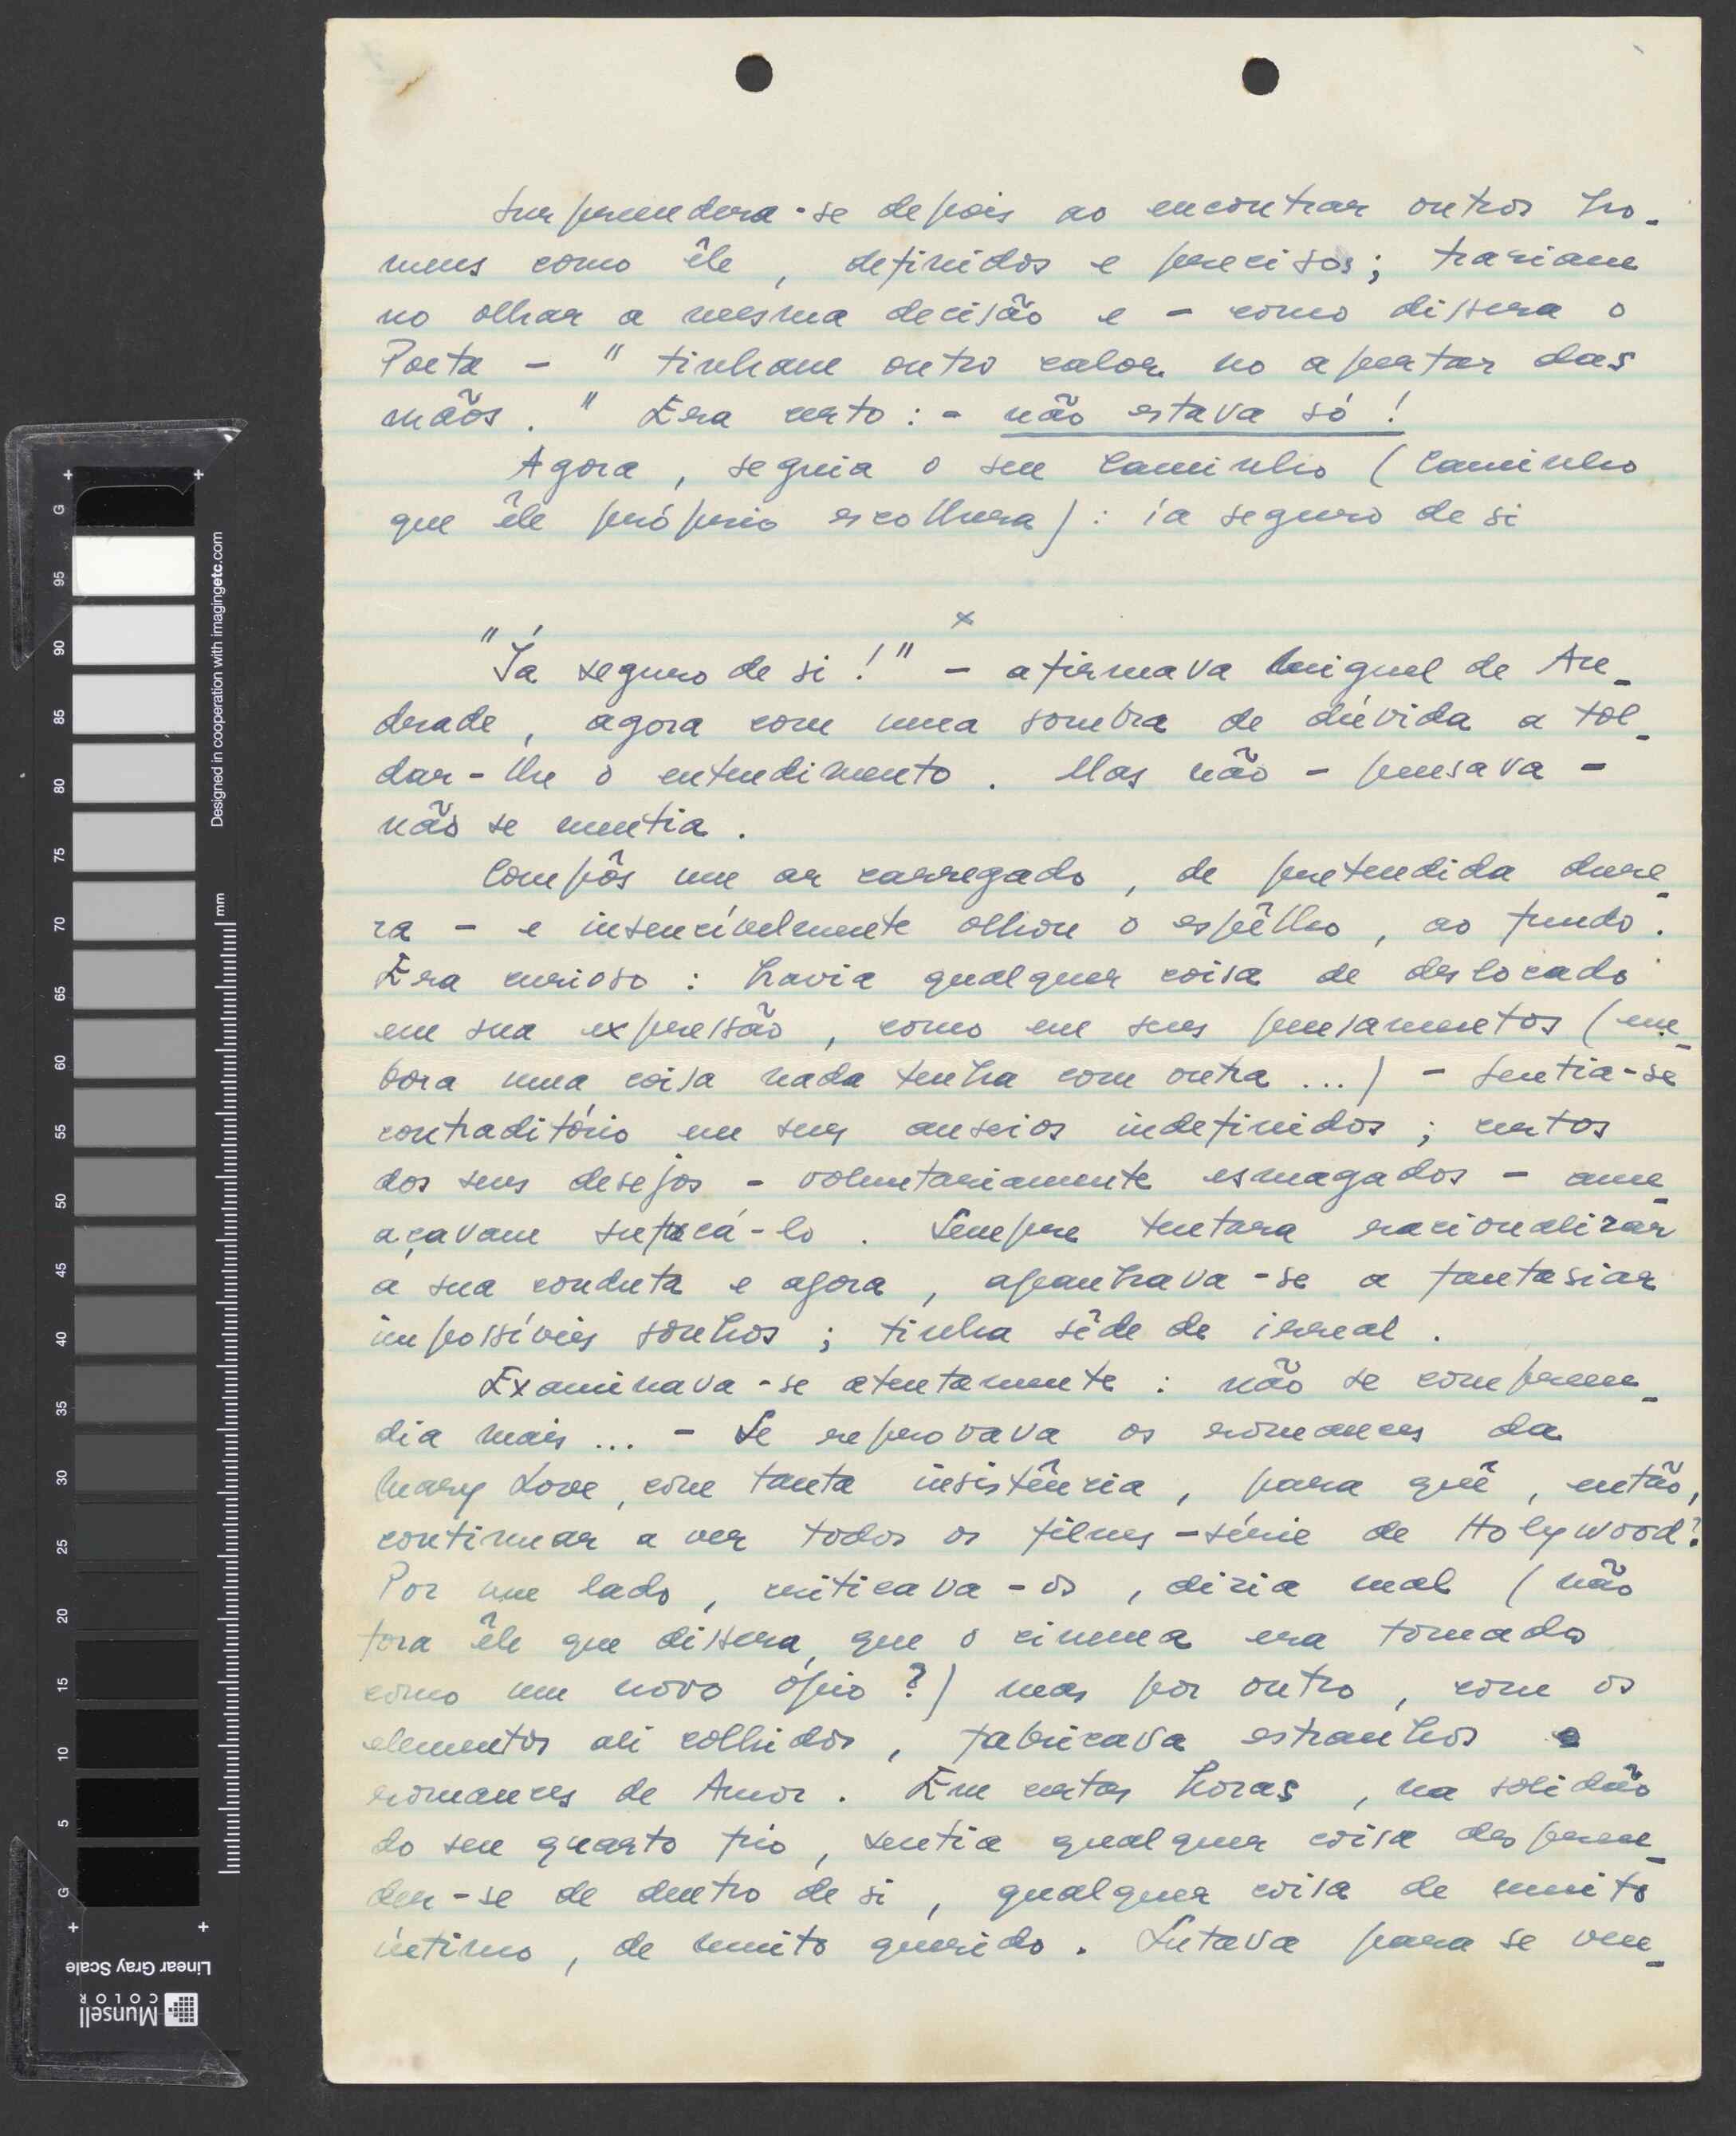 Surpreendera-se depois ao encontrar outros ho-
mens como êle, definidos e precisos; traziam
no olhar a mesma decisão e - como dissera o
Poeta - "tinham outro calor no apertar das
mãos." Era certo: - não estava só!
Agora, seguia o seu caminho (caminho
que êle próprio escolhera): ia seguro de si
x
"Ía seguro de si!" - afirmava Miguel de An-
drade, agora com uma sombra de dúvida a tol-
dar-lhe o entendimento. Mas não - pensava -
não se mentia.
Compôs um ar carregado, de pretendida dure-
za - e insencívelmente olhou o espêlho, ao fundo.
Era curioso: havia qualquer coisa de deslocado
em sua expressão, como em seus pensamentos (em-
bora uma coisa nada tenha com outra...) - Sentia-se
contraditório em seus anseios indefinidos; certos
dos seus desejos - voluntariamente esmagados - ame-
açavam sufocá-lo. Sempre tentara racionalizar
a sua conduta e agora, apanhava-se a fantasiar
impossíveis sonhos; tinha sêde de irreal.
Examinava-se atentamente: não se compreen-
dia mais... - Se reprovava os romances da
Mary Love, com tanta insistência, para quê, então,
continuar a ver todos os filmes-série de Holywood?
Por um lado, criticava-os, dizia mal (não
fora êle que dissera que o cinema era tomado
como um novo ópio?) mas por outro, com os
elementos ali colhidos, fabricava estranhos
romances de Amor. Em certas horas, na solidão
do seu quarto frio, sentia qualquer coisa despren-
der-se de dentro de si, qualquer coisa de muito
íntimo, de muito querido. Lutava para se ven-
Designed in cooperation with imagingetc.com
mm
G
95
90
85
80
75
70
65
60
55
50
45
40
35
30
25
20
15
10
5
G
Linear Gray Scale
Munsell
COLOR